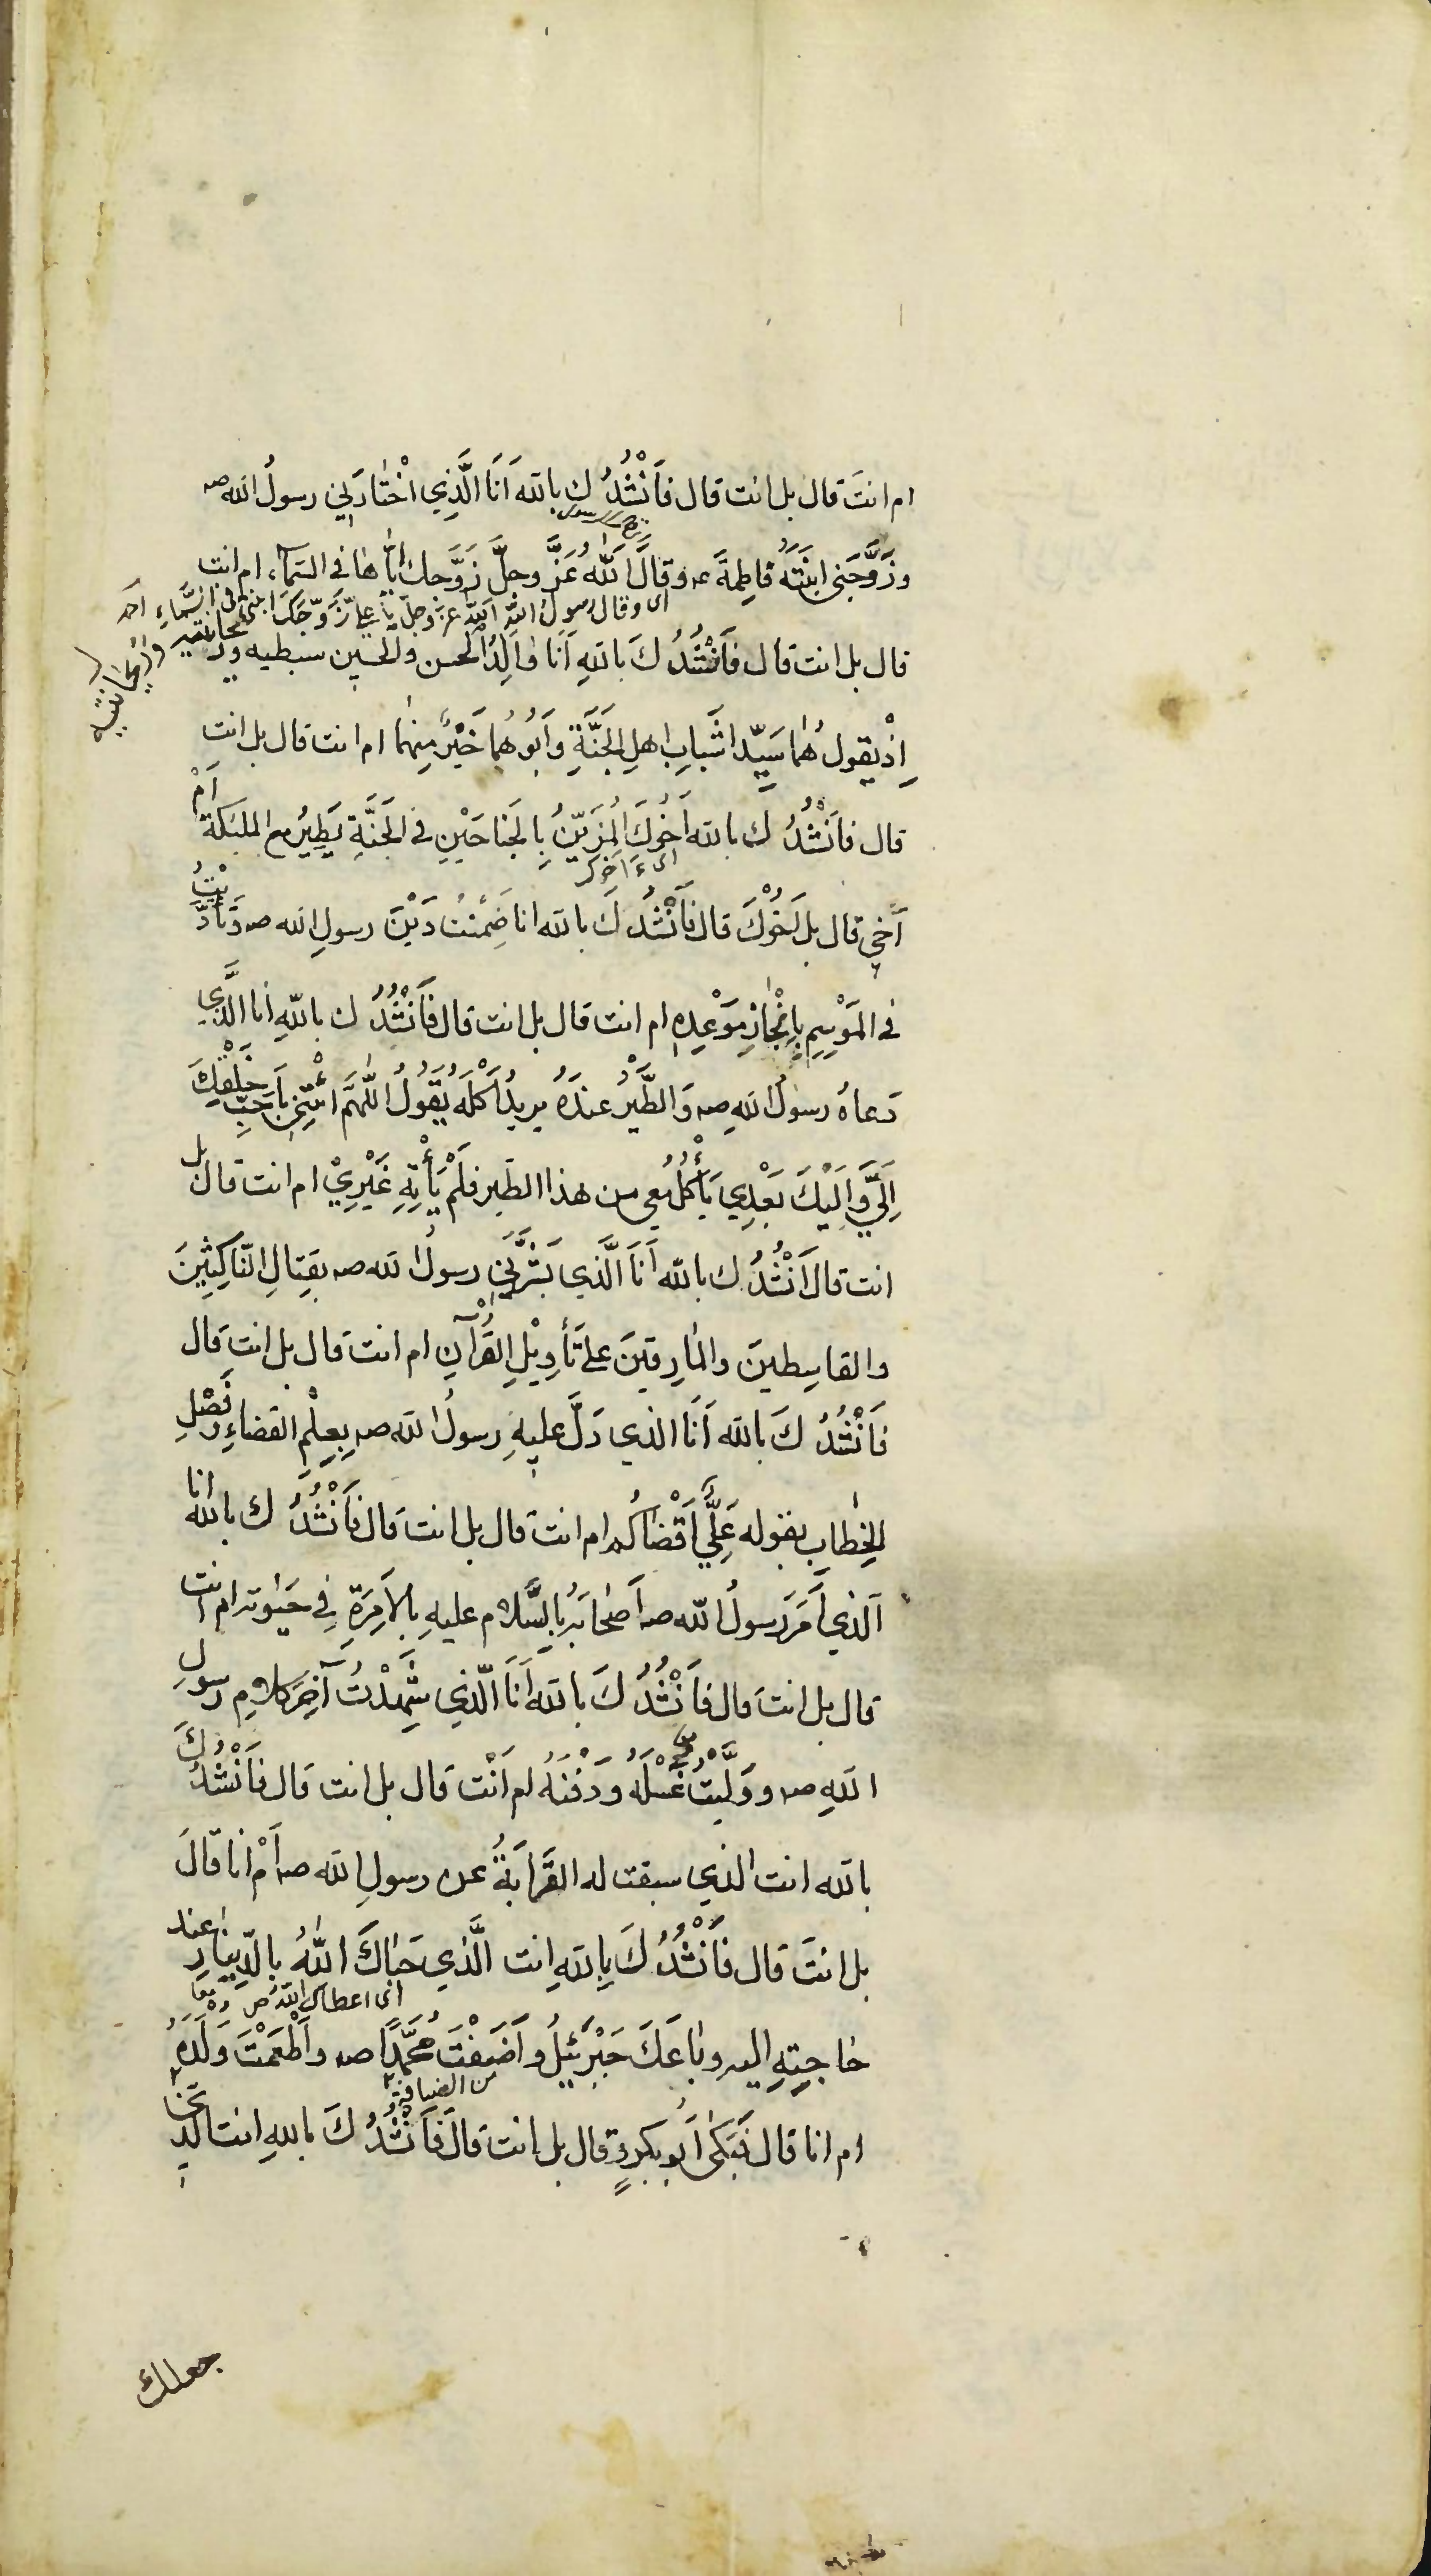 ام انتَ قال بل انت قال فَاَنْشُدُ ك بالله اَنَا الَّذِي اخْتٰارَنِي رسولُ الله صـ
وزَوَّجَنِي ابنَتَهُ فاطِمةَ عـ وقالَ اَللّٰهُ عَزَّ وجلَّ زَوَّجك اِيّٰاهٰا في السَّمآء ام انت
اى وقال رسول الله اللّه عزّ وجلّ يا علىّ زَوَّجَكَ ابنتى في السَّماءِ
قال بل انت قال فَاَنْشُدُ كَ بالله اَنَا وٰالِدُ الحسن والحسين سبطيه ور
يحانتيه
وَرَيْحانتيه
اِذْ يقول هُمٰا سَيِّدا شَبابِ اهلِ الجَنَّةِ وَاَبُوهُمٰا خَيْرٌ مِنهمٰا ام انت قال بل انت
قال فاَنْشُدُ ك بالله اَخُوكَ الُمزَيَّنُ بِالجَناحَيْنِ في الجَنَّةِ يَطِيرُ مع الملٰئكة اَمْ
اى ءَاخوك
اَخي قال بل اَخُوْكَ قال فَاَنْشُدُ كَ بالله انا ضَمِنْتُ دَيْنَ رسولِ الله صـ ونادَيْتُ
في المَوْسِمِ بِاِنْجٰازِ مَوْعِدِهِ ام انت قال بل انت قال فَاَنْشُدُ ك باللّهِ انا الَّذي
دَعاهُ رسولُ اللهِ صـ وَالطَّيْرُ عندَهُ يريدُ اَكْلَهُ يَقُولُ اللّٰهُمَّ ائْتِنِي بِاَحَبِّ خَلْقِكَ
اِلَيَّ وَاِلَيْكَ بَعْدِي يَأْكُلُ مَعي من هذا الطَير فلَمْ يَأْتِهِ غَيْرِيْ ام انت قال بل
انت قال اَنْشُدُ ك بالله اَنَا الَّذي بَشَّرَنِي رسولُ الله صـ بقِتالِ النّاكِثِينَ
والقاسِطينَ والمٰارِقينَ على تَأْوِيْلِ القُرْآنِ ام انت قال بل انت قال
فَاَنْشُدُ كَ بالله اَنَا الذي دَلَّ عليهِ رسولُ الله صـ بِعِلْمِ القضاءِ وفَصْلِ
الخِطٰابِ بقوله عَلِيٌّ اَقْضٰاكُم ام انت قال بل انت قال فَاَنْشُدُ ك باللّٰه انا
الذي اَمَرَ رسولُ اللّه صـ اَصْحٰابَهُ بالسَّلام عليهِ بالاِمْرَةِ في حَيٰوته ام انت
قال بل انت قال فاَنْشُدُ كَ بالله اَنَا الّذي شَهِدْتُ آخِرَ كلامِ رسولِ
اللهِ صـ ووَلَّيْتُ غُسْلَهُ ودَفْنَهُ ام اَنْت قال بل انت قال فاَنْشُدُ كَ
بالله انت الذي سبقت له القَرٰابَةُ عن رسولِ الله صـ اَمْ انا قالَ
بل انتَ قال فَاَنْشُدُ كَ بِاللهِ انت الَّذي حَبٰاكَ اللّٰهُ بالدِّينٰارِ عند
اى اعطاك اللّهُ
حٰاجتِهِ اليه وبٰاعَكَ جَبْرَئيلُ واَضَفْتَ مُحَمَّدًا صـ واَطْعَمْتَ وَلَدَهُ
من الضيافة
ام انا قال فَبَكٰى اَبوبكر وقال بل انت قال فَاَنْشُدُ كَ باللهِ انت الّذي
جعلك